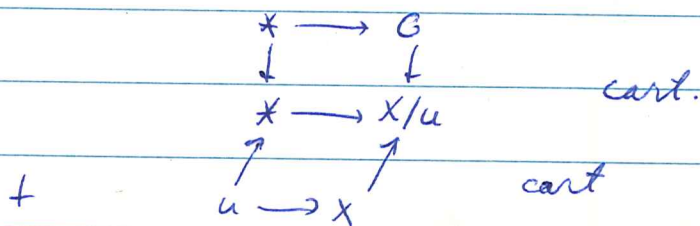 * → G
↓ ↓
* → X/u cart.
↗ ↗
† u → X cart